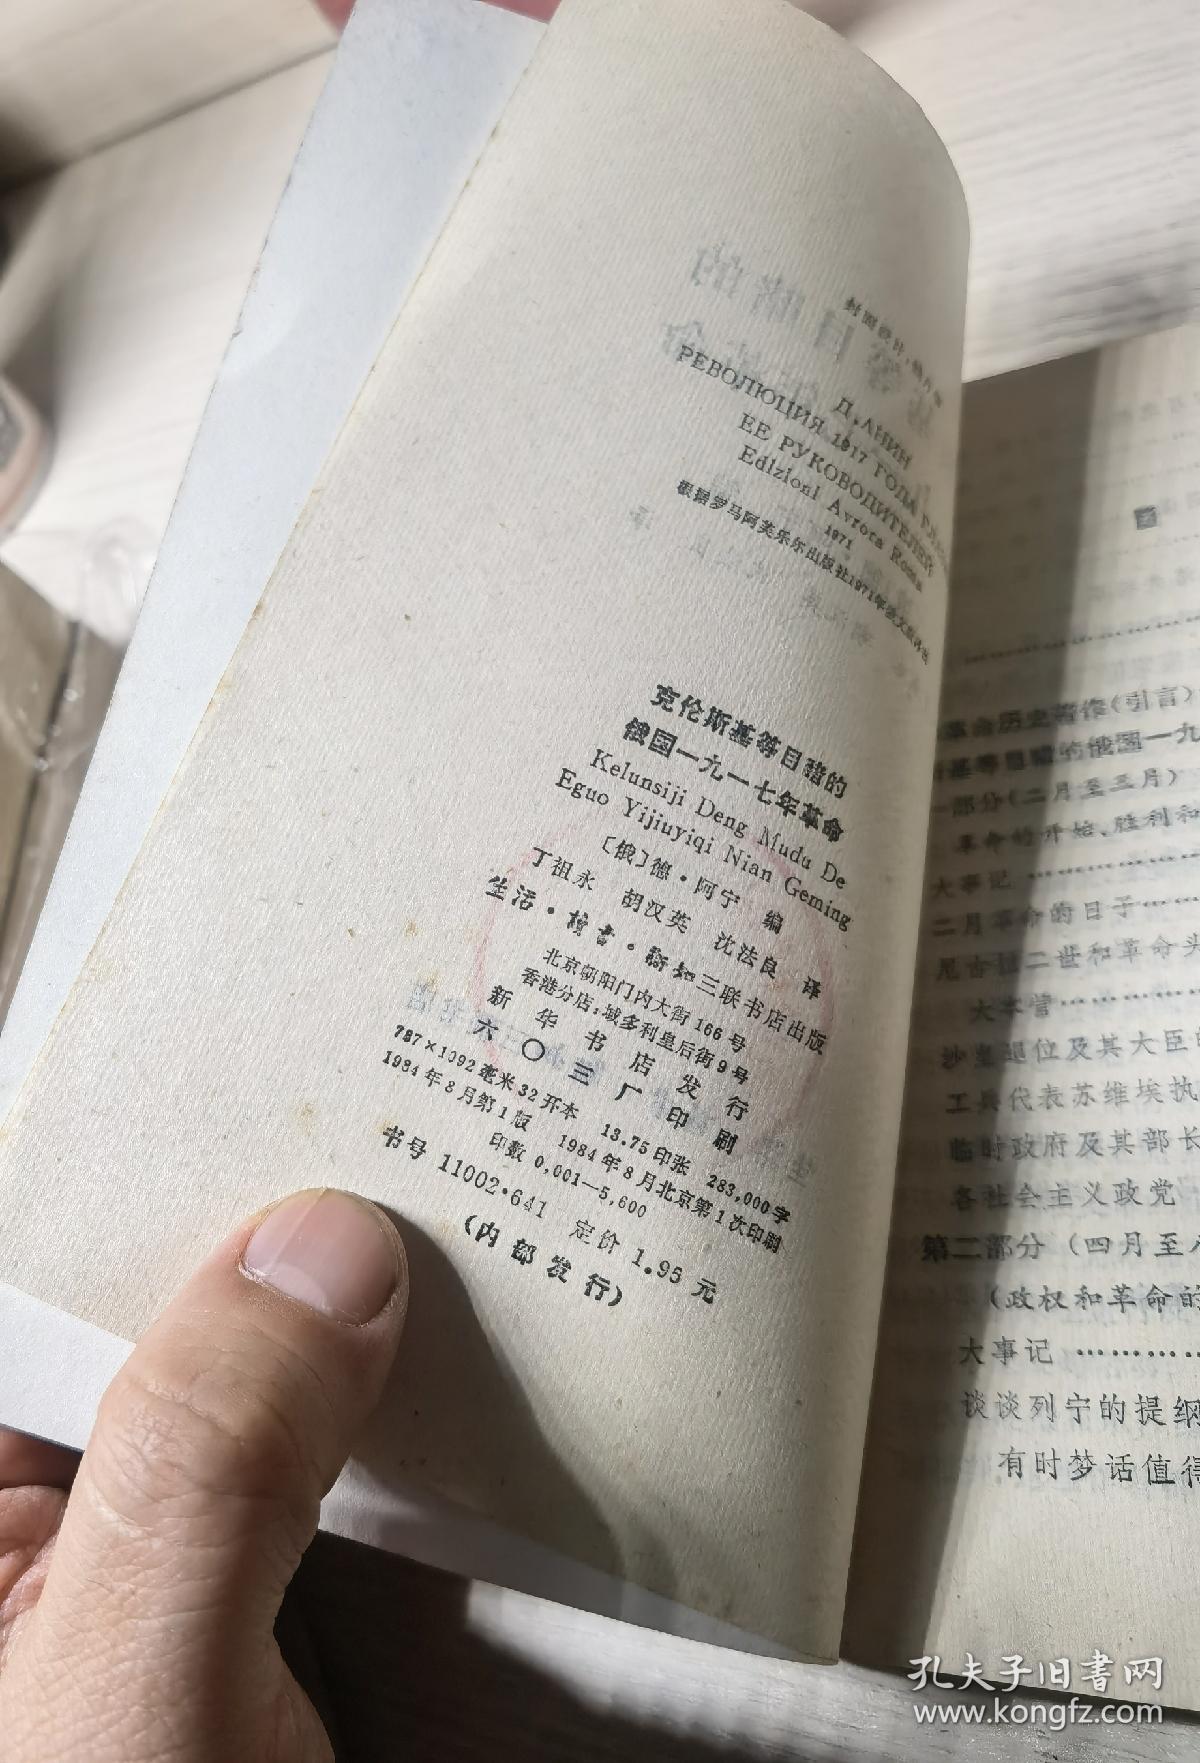 Д. АНИН
РЕВОЛЮЦИЯ 1917 ГОДА ГЛАЗАМИ
ЕЕ РУКОВОДИТЕЛЕЙ
Edizioni Avrora Roma
1971
克伦斯基等目睹的
俄国一九一七年革命
Kelunsiji Deng Mudu De
Eguo Yijiuyiqi Nian Geming
〔俄〕德·阿宁 编
丁祖永 胡汉英 沈法良 译
生活·读书·新知三联书店出版
北京朝阳门内大街 166 号
香港分店:域多利皇后街9号
新华书店发行
六〇三厂印刷
787×1092毫米32开本 13.75印张 283,000字
1984年8月第1版 1984年8月北京第1次印刷
印数 0,001—5,600
书号 11002·641 定价 1.95 元
(内部发行)
革命历史著作(引言)
基等目睹的俄国一九
一部分(二月至三月)
革命的开始、胜利和
大事记 …………
二月革命的日子……
尼古拉二世和革命头
大本营…………
沙皇退位及其大臣
工兵代表苏维埃执
临时政府及其部长
各社会主义政党
第二部分(四月至
(政权和革命的
大事记 …………
谈谈列宁的提纲
有时梦话值得
孔夫子旧书网
www.kongfz.com